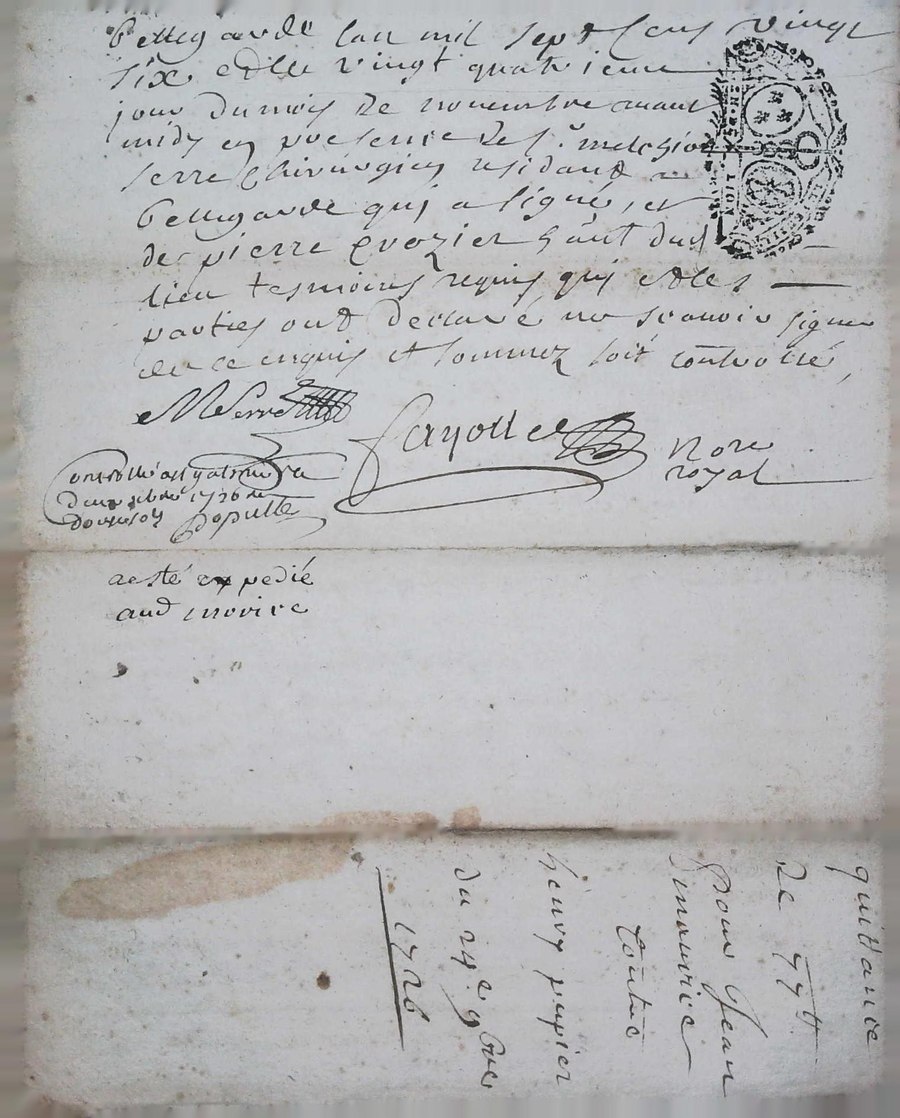 bellegarde lan mil sept cens vingt
six & le vingt quatrieme
jour du mois de novembre avant
midy en presence de sr. melchior
serre chirurgien residant a
bellegarde qui a signé, et
de pierre crozier hāut dud
lieu tesmoins requis qui & les
parties ont declaré ne scavoir signer
de ce enquis et sommez soit controllé,
MSerre
fayolle
Nore
royal
Controllé a
1726
douze sols
a esté expedié
aud morice
quittance
de 77 tt
pour Jean
morice
Contre
henry papier
du 24e 9bre
1726